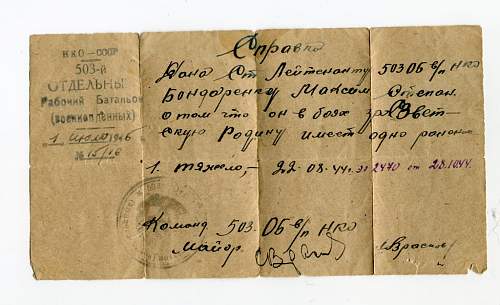 НКО—СССР
503-й
ОТДЕЛЬНЫ
Рабочий Батальо
(военнопленных)
1 июля 1946
№ 15/16
Справка
Дана Ст Лейтенанту 503 ОБ в/п НКО
Бондаренку Максим Степан.
о том что он в боях за Совет-
скую Родину имеет одно ранение
1. тяжело,- 22-08-44г. 2470 от 28.1044.
Команд 503. ОБ в/п НКО
Майор.